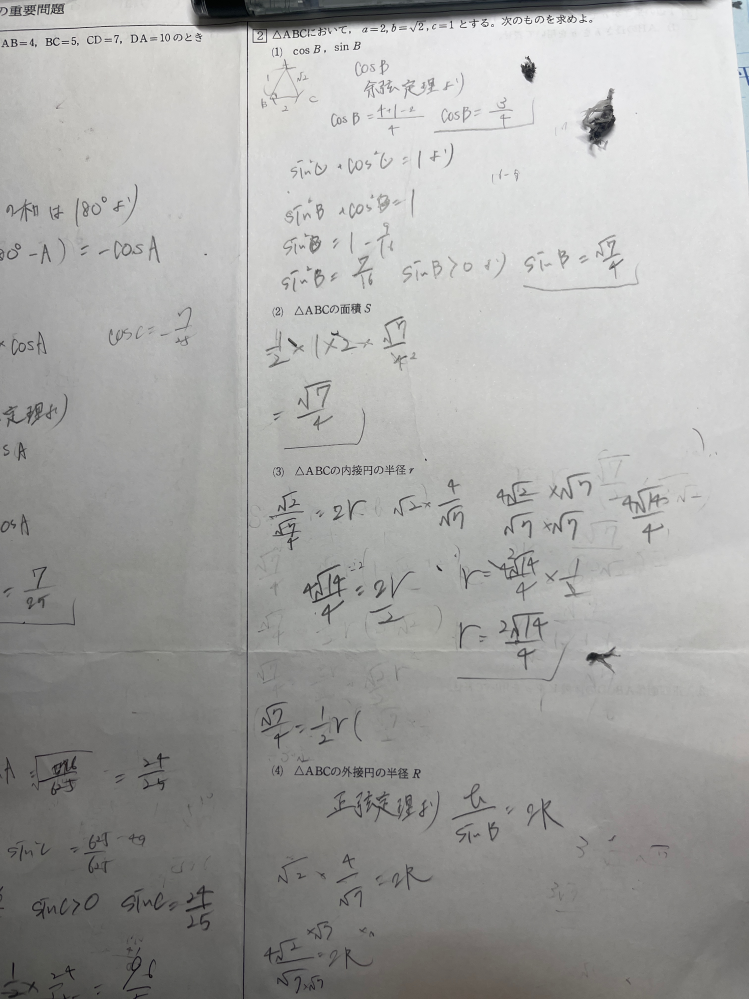 の重要問題
AB=4, BC=5, CD=7, DA=10のとき
の和は180°より
80°-A) = -cosA
× cosA cosC = -7/25
定理より
sA
osA
= 7/25
A = = 24/25
sinC = 625-49/625
sinC>0 sinC = 24/25
1/2 × 24
2 △ABCにおいて, a=2, b=√2, c=1 とする。次のものを求めよ。
(1) cos B, sin B
A
1 √2
B 2 C
cosB
余弦定理より
cosB = 4+1-2/4 cosB = 3/4
sin²C + cos²C = 1 より
16-9
sin²B + cos²B = 1
sin²B = 1 - 9/16
sin²B = 7/16 sinB>0 より sinB = √7/4
(2) △ABCの面積 S
1/2 × 1 × 2 × √7/4
= √7/4
(3) △ABCの内接円の半径 r
√2/(√7/4) = 2r √2 × 4/√7 4√2×√7/√7×√7 4√14/4
4√14/4 = 2r/2 r = 4√14/4 × 1/2
r = 2√14/4
√7/4 = 1/2 r (
(4) △ABCの外接円の半径 R
正弦定理より b/sinB = 2R
√2 × 4/√7 = 2R
4√2×√7/√7×√7 = 2R